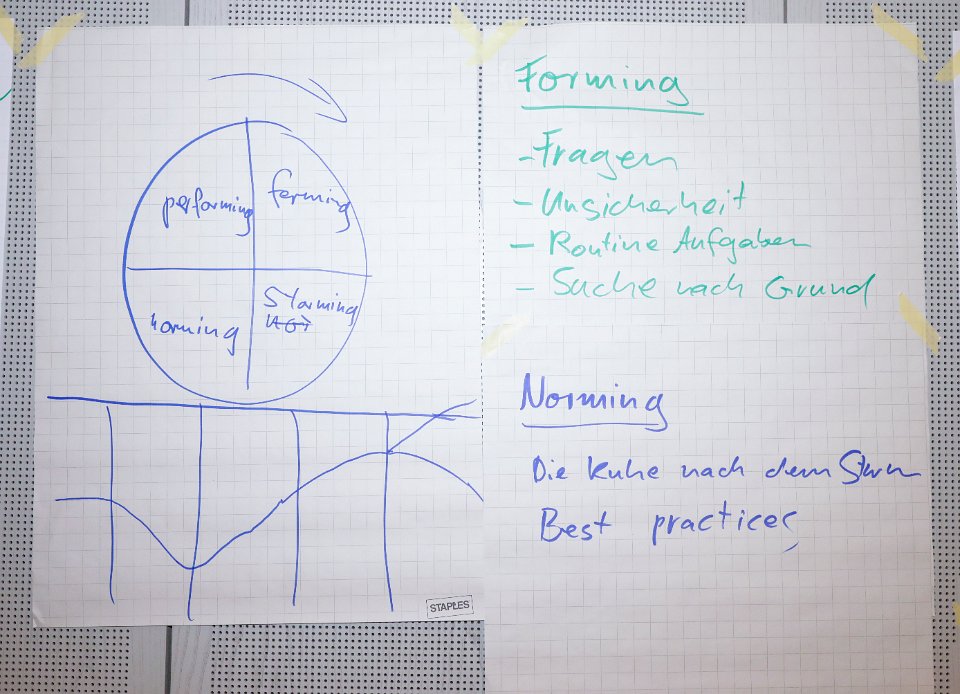 performing
forming
norming
Storming
STAPLES
Forming
- Fragen
- Unsicherheit
- Routine Aufgaben
- Suche nach Grund
Norming
Die Ruhe nach dem Sturm
Best practices